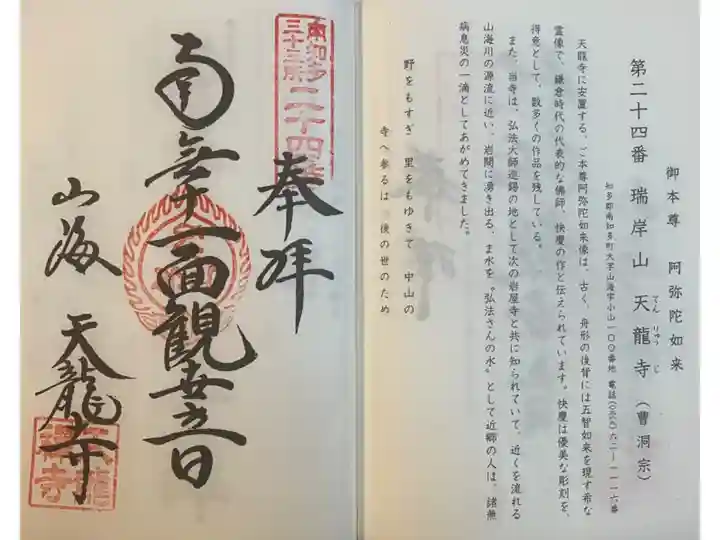 御本尊　阿弥陀如来
第二十四番　瑞岸山　天龍寺（曹洞宗）
てん　りゅう　じ
知多郡南知多町大字山海字小山一〇〇番地　電話(〇五六九)六二―一一一六番
天龍寺に安置する、ご本尊阿弥陀如来像は、古く、舟形の後背には五智如来を現す希な
霊像で、鎌倉時代の代表的な佛師、快慶の作と伝えられています。快慶は優美な彫刻を、
得意として、数多くの作品を残している。
また、当寺は、弘法大師巡錫の地として次の岩屋寺と共に知られていて、近くを流れる
山海川の源流に近い、岩間に湧き出る、ま水を〝弘法さんの水〟として近郷の人は、諸無
病息災の一滴としてあがめてきました。
野をもすぎ　里をもゆきて　中山の
寺へ参るは　後の世のため
南知多
三十三所
二十四番
奉拝
南無十一面観世音
山海　天龍寺